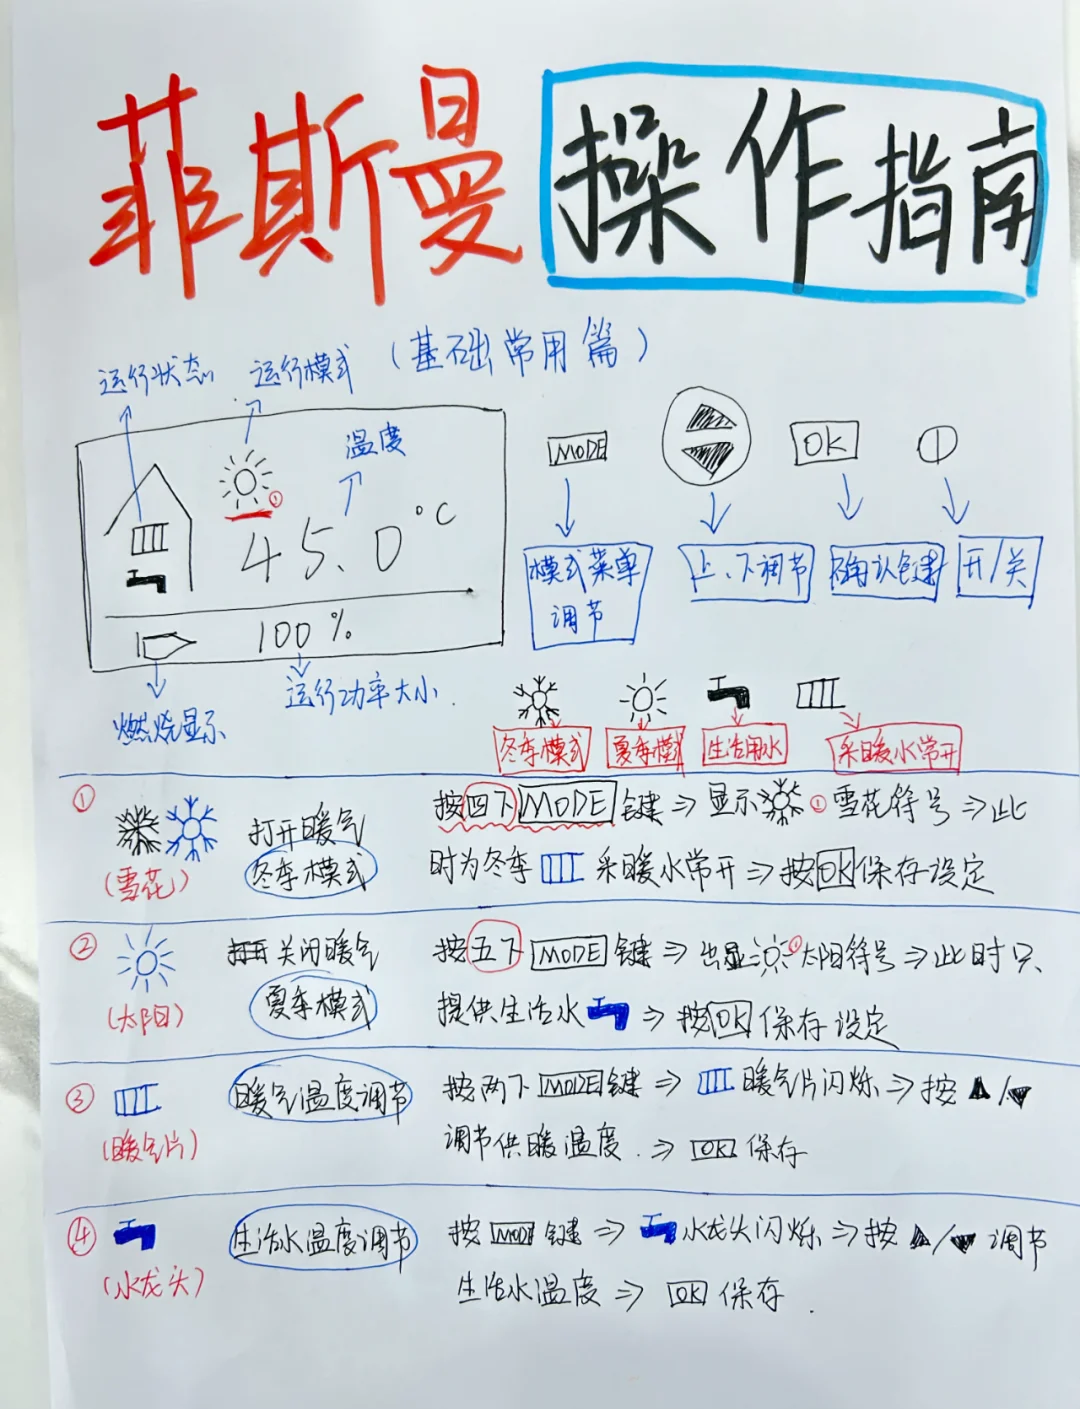 菲斯曼 操作指南
(基础常用篇)
运行状态 运行模式
温度
①
45.0°C
100%
燃烧显示
运行功率大小.
MODE OK
模式菜单调节 上、下调节 确认键 开/关
冬季模式 夏季模式 生活用水 采暖水常开
① 打开暖气 按四下 MODE 键 ⇒ 显示 ① 雪花符号 ⇒ 此
(雪花) 冬季模式 时为冬季 采暖水常开 ⇒ 按 OK 保存设定
② 关闭暖气 按五下 MODE 键 ⇒ 出显 ① 太阳符号 ⇒ 此时只
(太阳) 夏季模式 提供生活水 ⇒ 按 OK 保存设定
③ 暖气温度调节 按两下 MODE 键 ⇒ 暖气片闪烁 ⇒ 按 ▲/▼
(暖气片) 调节供暖温度. ⇒ OK 保存
④ 生活水温度调节 按 MODE 键 ⇒ 水龙头闪烁 ⇒ 按 ▲/▼ 调节
(水龙头) 生活水温度 ⇒ OK 保存.